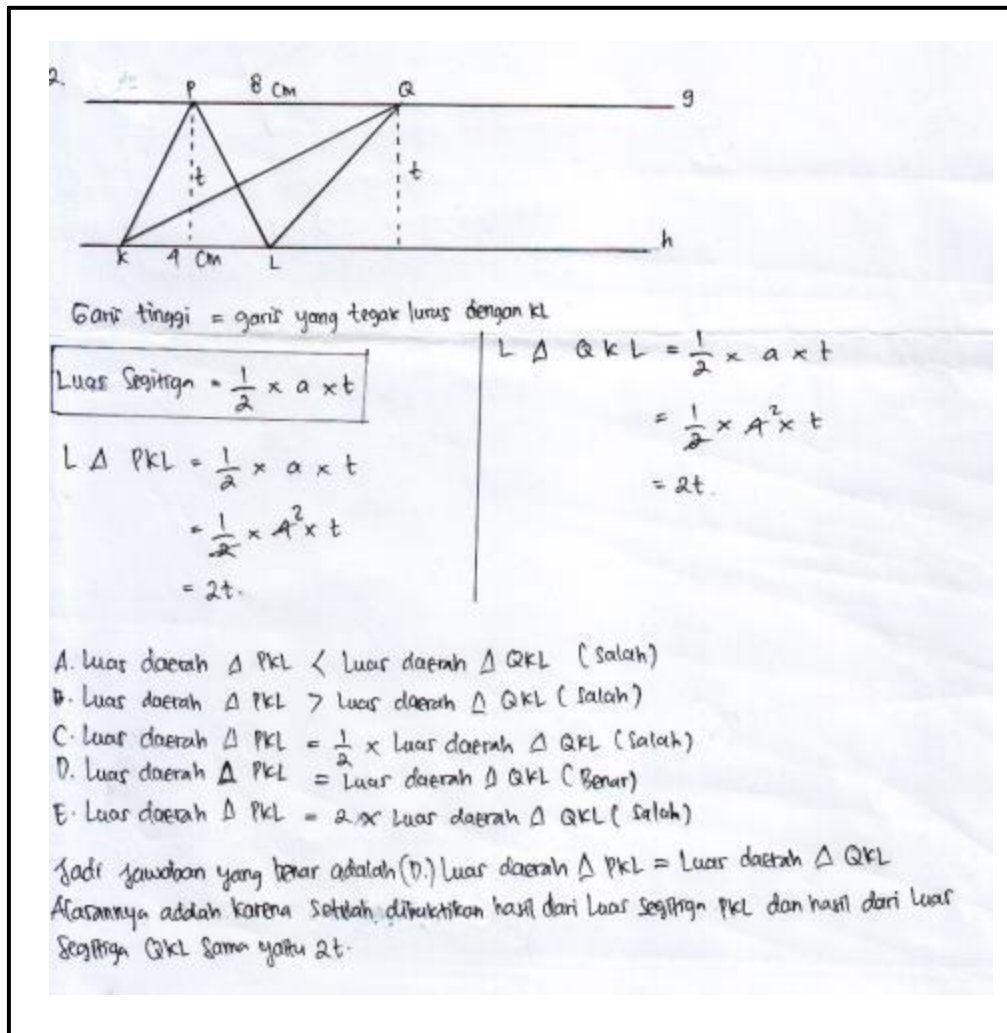 2.
P 8 cm Q g
t t
K 4 cm L h
Garis tinggi = garis yang tegak lurus dengan KL
Luas Segitiga = 1/2 x a x t
L Δ PKL = 1/2 x a x t
= 1/2 x 4² x t
= 2t.
L Δ QKL = 1/2 x a x t
= 1/2 x 4² x t
= 2t.
A. Luas daerah Δ PKL < Luas daerah Δ QKL (Salah)
B. Luas daerah Δ PKL > Luas daerah Δ QKL (Salah)
C. Luas daerah Δ PKL = 1/2 x Luas daerah Δ QKL (Salah)
D. Luas daerah Δ PKL = Luas daerah Δ QKL (Benar)
E. Luas daerah Δ PKL = 2 x Luas daerah Δ QKL (Salah)
Jadi jawaban yang benar adalah (D.) Luas daerah Δ PKL = Luas daerah Δ QKL
Alasannya adalah karena setelah dibuktikan hasil dari Luas segitiga PKL dan hasil dari Luar
Segitiga QKL Sama yaitu 2t.